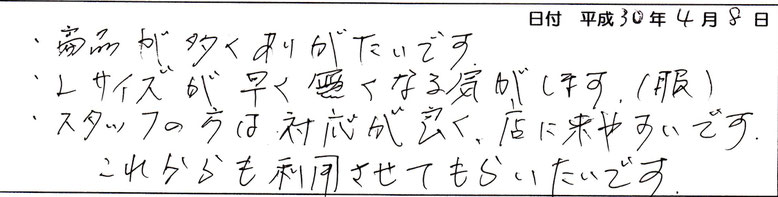 日付 平成30年4月8日
・商品が多くありがたいです。
・Lサイズが早く無くなる気がします。(服)
・スタッフの方は対応が良く、店に来やすいです。
これからも利用させてもらいたいです。